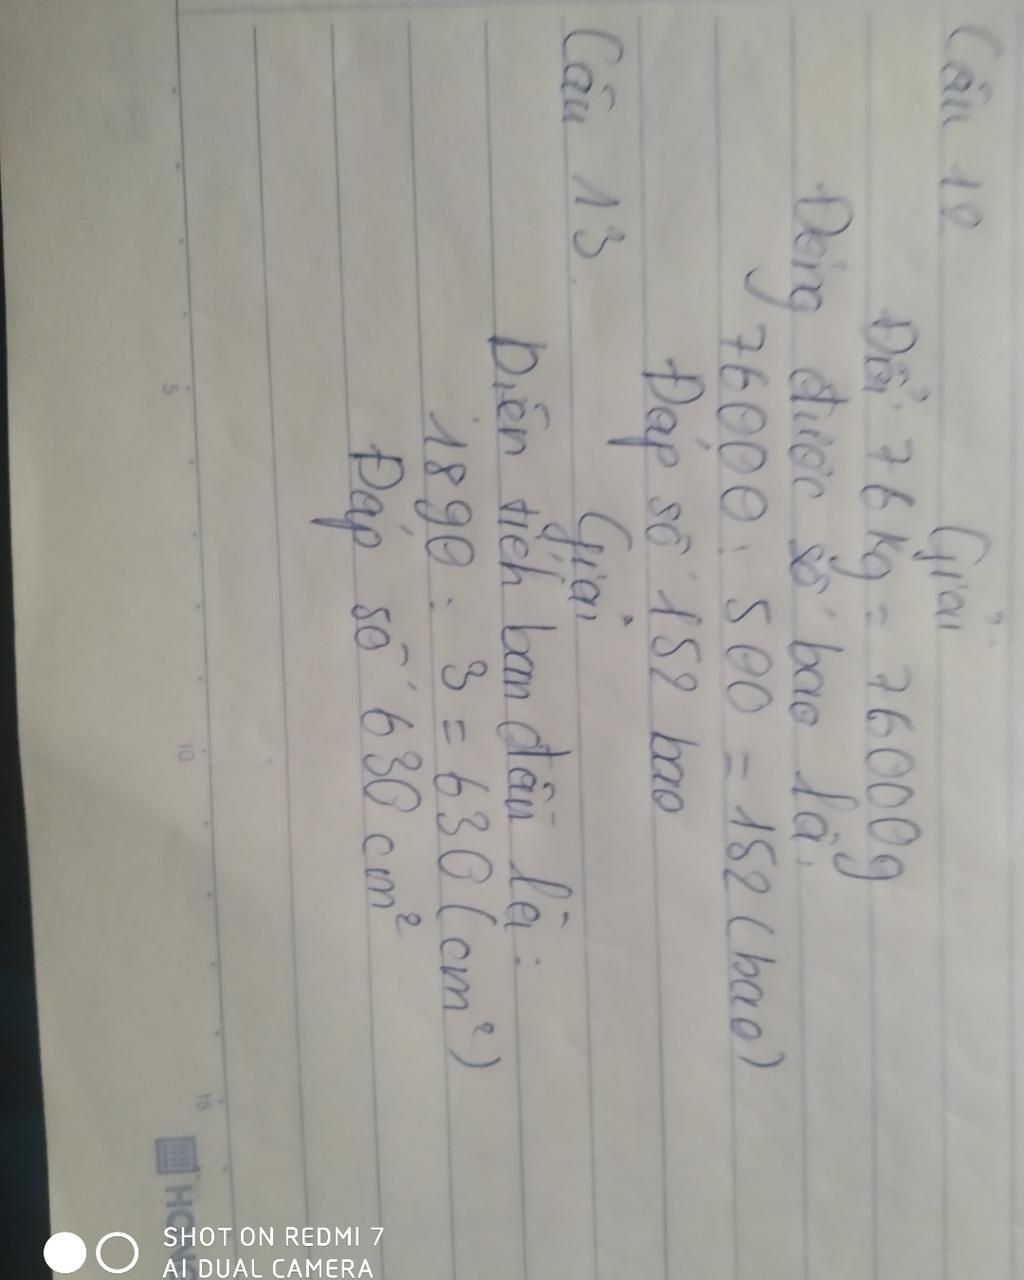 Câu 12
Giải
Đổi: 76kg = 76000g
Đóng được số bao là:
76000 : 500 = 152 (bao)
Đáp số 152 bao
Câu 13
Giải
Diện tích ban đầu là:
1890 : 3 = 630 (cm²)
Đáp số 630 cm²
5
10
15
SHOT ON REDMI 7
AI DUAL CAMERA